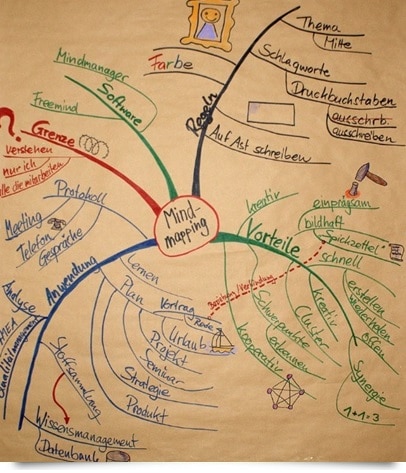 Mind-
mapping
Regeln
Thema
Mitte
Schlagworte
Druckbuchstaben
ausschrb.
ausschreiben
Auf Ast schreiben
Farbe
Software
Mindmanager
Freemind
Grenze
?
verstehen
nur ich
die mitarbeiten
Anwendung
Protokoll
Meeting
Telefon
Gespräche
Lernen
Plan
Vortrag
Rede
Urlaub
Projekt
Seminar
Strategie
Produkt
Analyse
Stoffsammlung
Wissensmanagement
Datenbank
Vorteile
kreativ
einprägsam
bildhaft
"Spickzettel"
schnell
erstellen
wiederholen
offen
Synergie
1+1=3
kreativ
Cluster
Schwerpunkte
erkennen
kooperativ